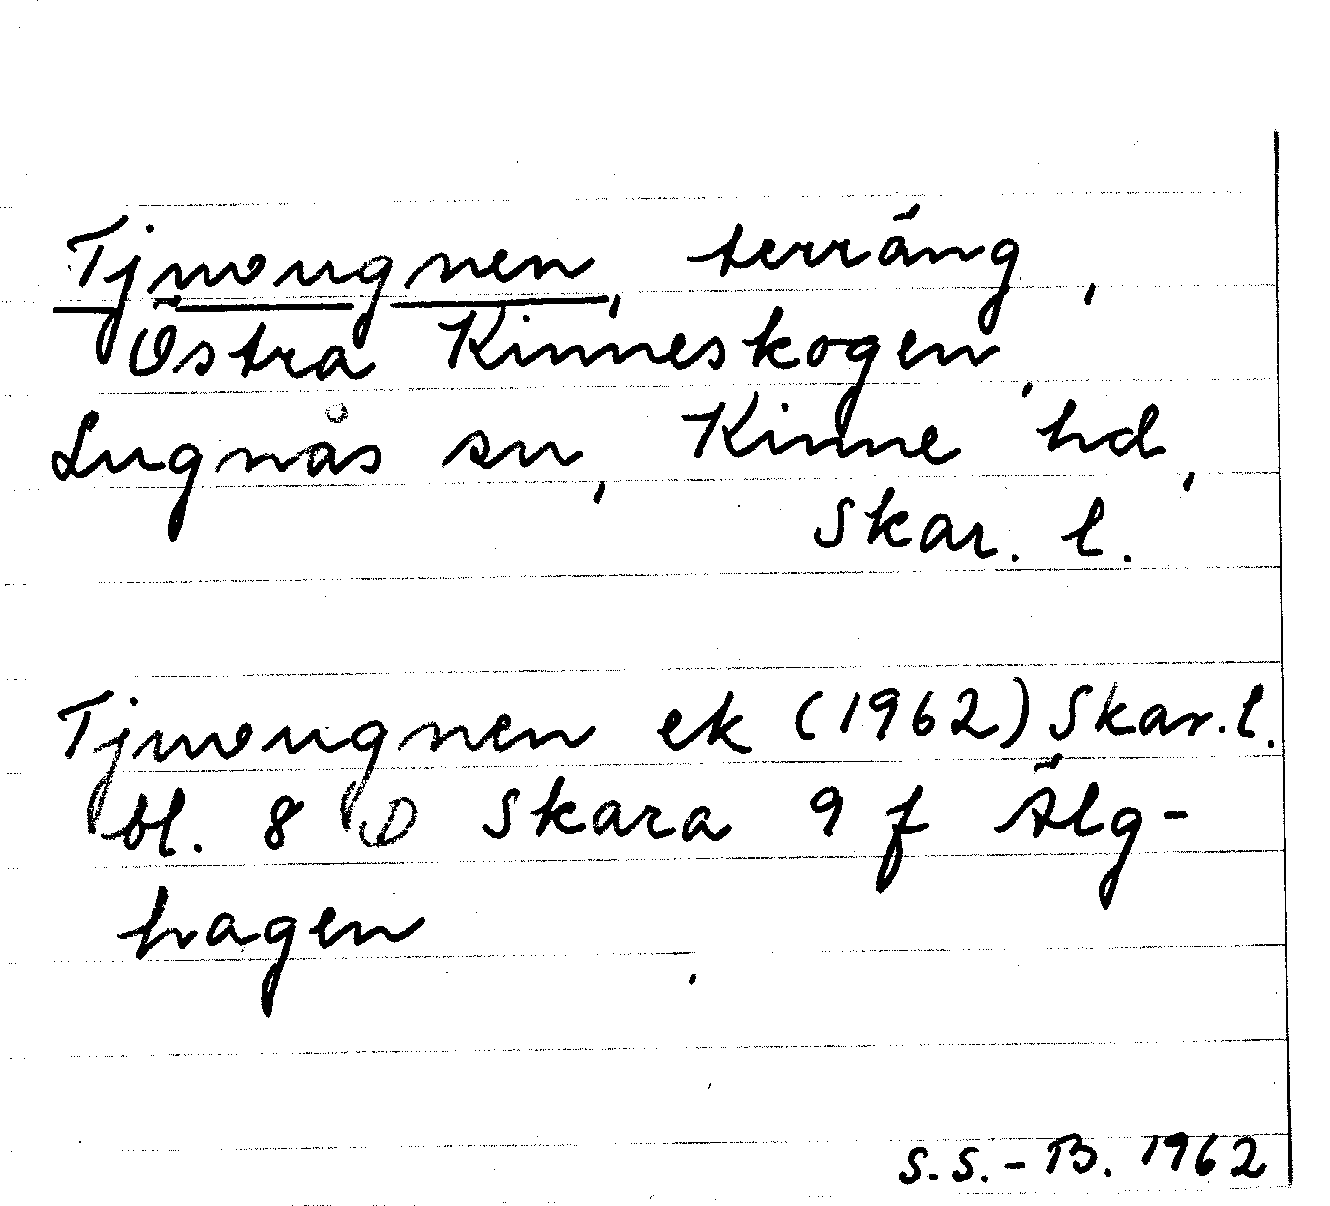 Tjuvugnen, terräng,
Östra Kinneskogen,
Lugnås sn, Kinne hd,
Skar. l.
Tjuvugnen ek (1962) Skar. l.
bl. 8 D Skara 9 f Älg-
hagen
S. S. - B. 1962